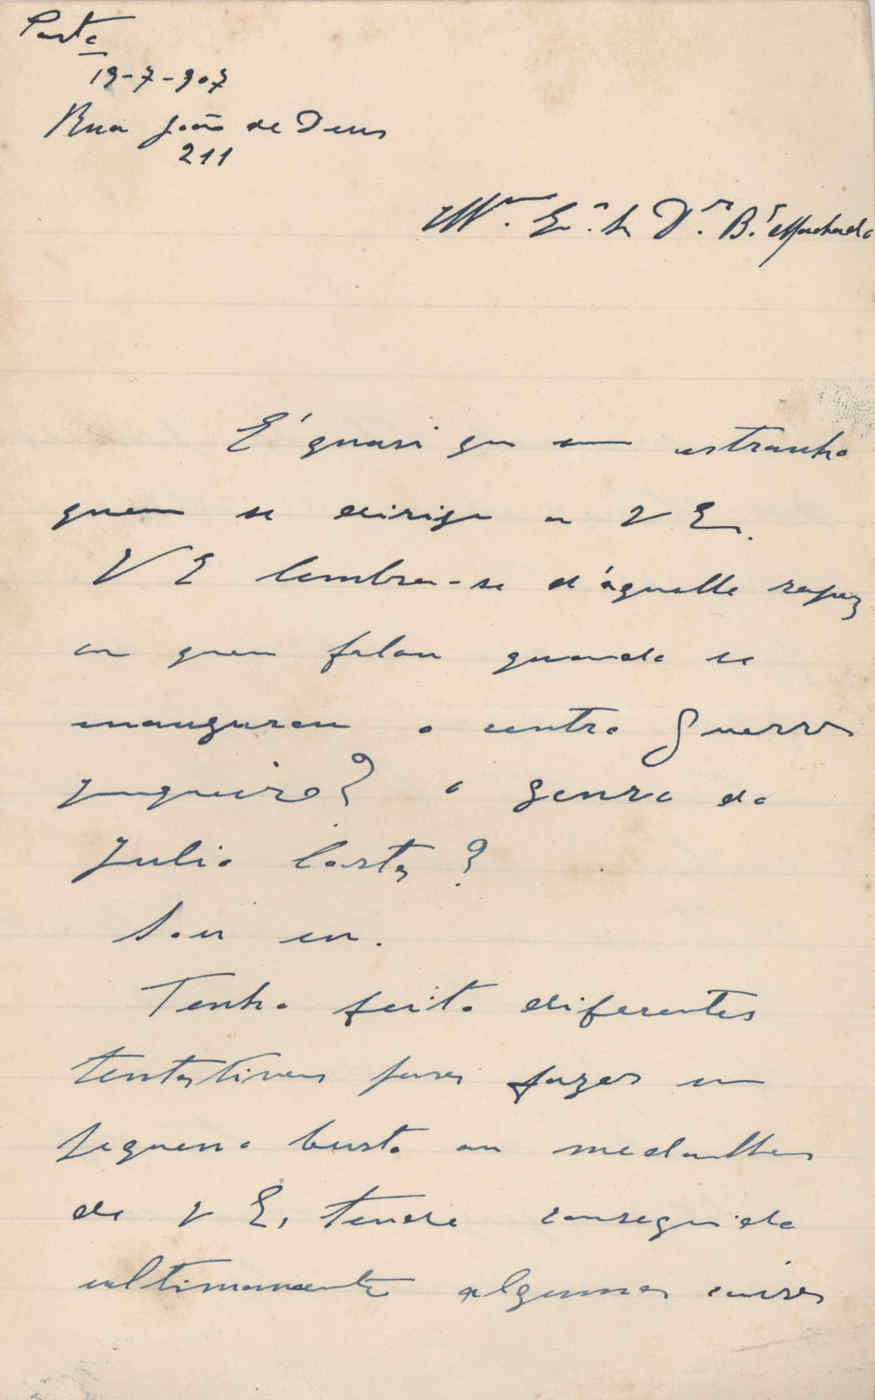 Porto
19-7-907
Rua João de Deus
211
Illmo. Exmo. Sr. Dr. B. Machado
É quasi que um estranho
quem se dirige a V E.
V E lembra-se d'aquelle rapaz
a quem falou quando se
inaugurou o centro Guerra
Junqueiro? o genro do
Julio Costa?
Sou eu.
Tenho feito diferentes
tentativas para fazer um
pequeno busto ou medalha
de V E, tendo conseguido
ultimamente alguma coisa